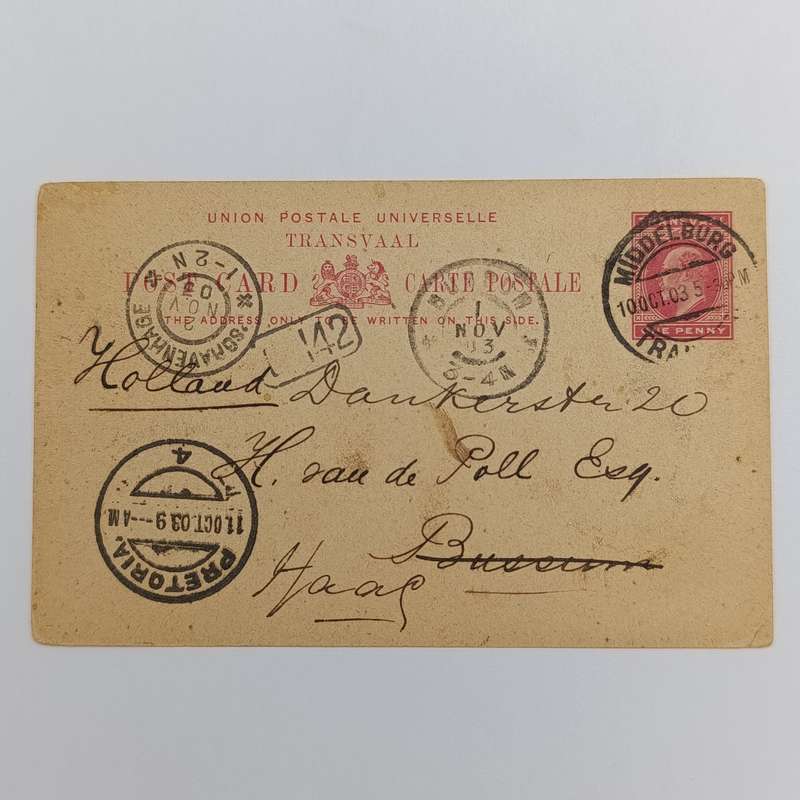 UNION POSTALE UNIVERSELLE
TRANSVAAL
POST CARD CARTE POSTALE
THE ADDRESS ONLY TO BE WRITTEN ON THIS SIDE.
ONE PENNY
MIDDELBURG
10 OCT. 03 5-30PM
'SGRAVENHAGE
2 NOV 03
1-2 N
1
NOV
03
3-4 N
142
Holland Dankerstr 20
H. van de Poll Esq.
Bussum
Haag
4
11.OCT.03.9---AM
PRETORIA.